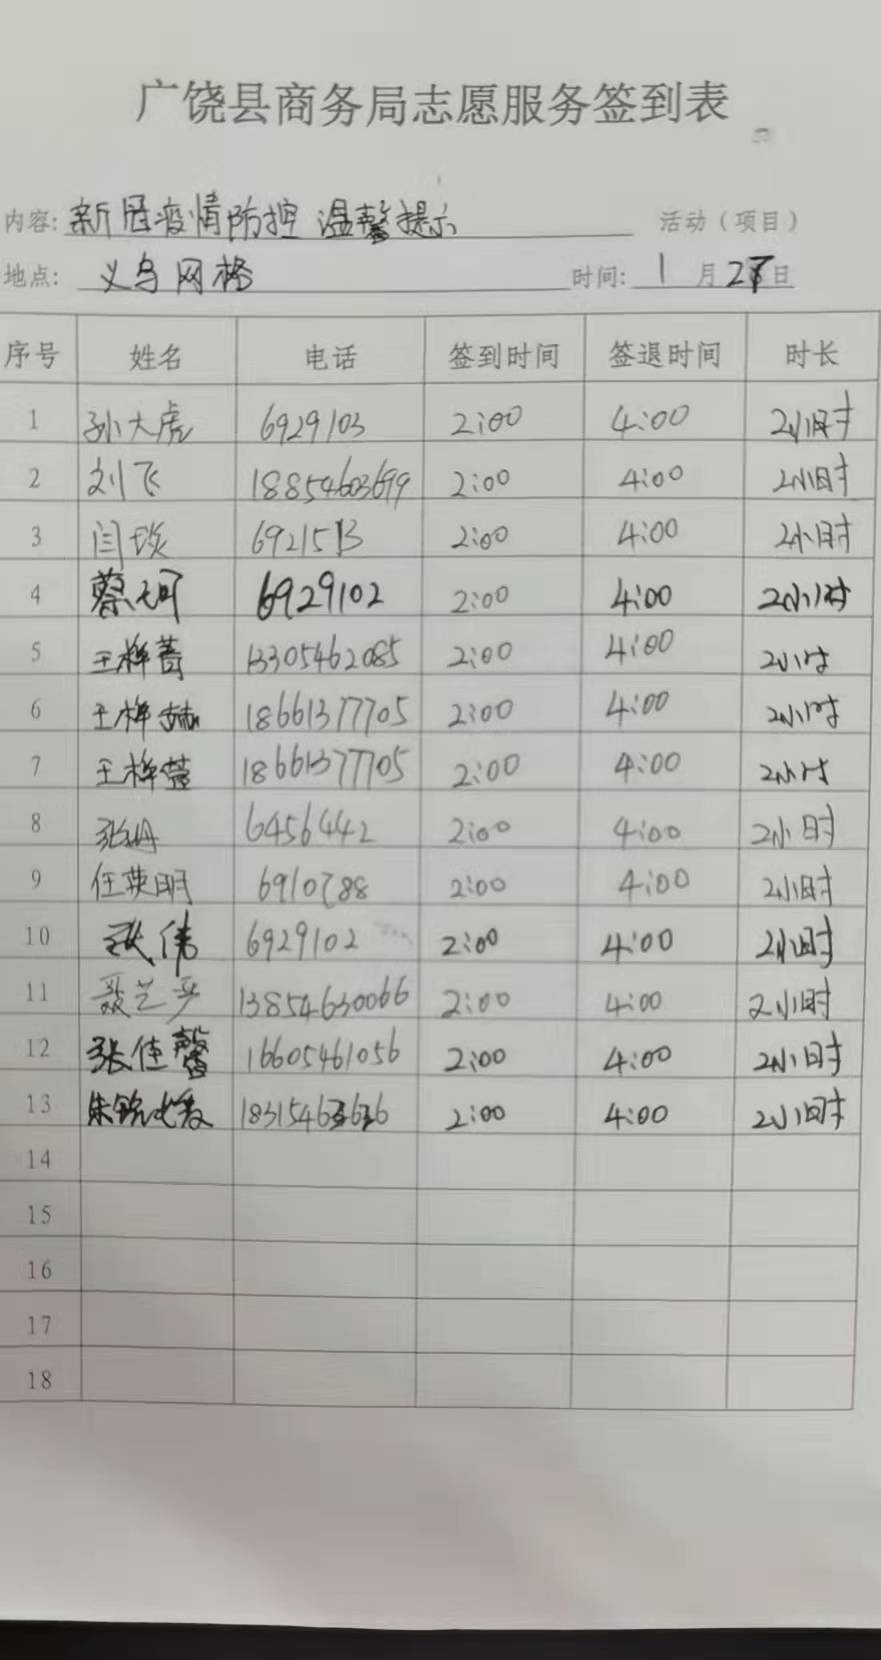 广饶县商务局志愿服务签到表
内容: 新冠疫情防控 温馨提示 活动（项目）
地点: 义乌网格 时间: 1 月 27 日
序号 姓名 电话 签到时间 签退时间 时长
1 孙大虎 6929103 2:00 4:00 2小时
2 刘飞 18854603699 2:00 4:00 2小时
3 闫琰 6921513 2:00 4:00 2小时
4 6929102 2:00 4:00 2小时
5 王梓菁 13305462085 2:00 4:00 2小时
6 王梓赫 18661377705 2:00 4:00 2小时
7 王梓萱 18661377705 2:00 4:00 2小时
8 张娟 6456442 2:00 4:00 2小时
9 任英明 6910788 2:00 4:00 2小时
10 张伟 6929102 2:00 4:00 2小时
11 聂兰平 13854630066 2:00 4:00 2小时
12 张佳馨 16605461056 2:00 4:00 2小时
13 2:00 4:00 2小时
14
15
16
17
18